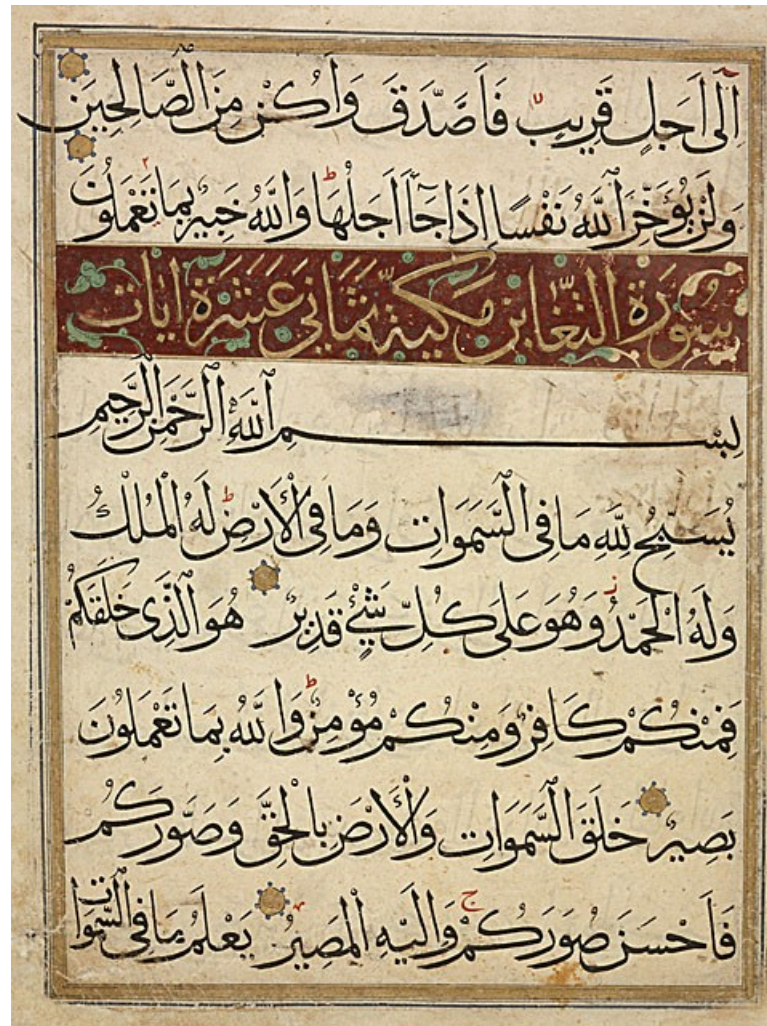 اِلٰى اَجَلٍ قَرِيبٍ فَاَصَّدَّقَ وَاَكُنْ مِنَ الصَّالِحِينَ
وَلَنْ يُؤَخِّرَ اللّٰهُ نَفْسًا اِذَا جَآءَ اَجَلُهَا وَاللّٰهُ خَبِيرٌ بِمَا تَعْمَلُونَ
سُورَةُ التَّغَابُنِ مَكِّيَّةٌ ثَمَانِيَ عَشَرَةَ اٰيَات
بِسْمِ اللّٰهِ الرَّحْمٰنِ الرَّحِيمِ
يُسَبِّحُ لِلّٰهِ مَا فِى السَّمَوَاتِ وَمَا فِى الْاَرْضِ ط لَهُ الْمُلْكُ
وَلَهُ الْحَمْدُ ز وَهُوَ عَلٰى كُلِّ شَىْءٍ قَدِيرٌ هُوَ الَّذِى خَلَقَكُمْ
فَمِنْكُمْ كَافِرٌ وَمِنْكُمْ مُؤْمِنٌ ط وَاللّٰهُ بِمَا تَعْمَلُونَ
بَصِيرٌ خَلَقَ السَّمَوَاتِ وَالْاَرْضَ بِالْحَقِّ وَصَوَّرَكُمْ
فَاَحْسَنَ صُوَرَكُمْ ج وَاِلَيْهِ الْمَصِيرُ يَعْلَمُ مَا فِى السَّمَوَاتِ